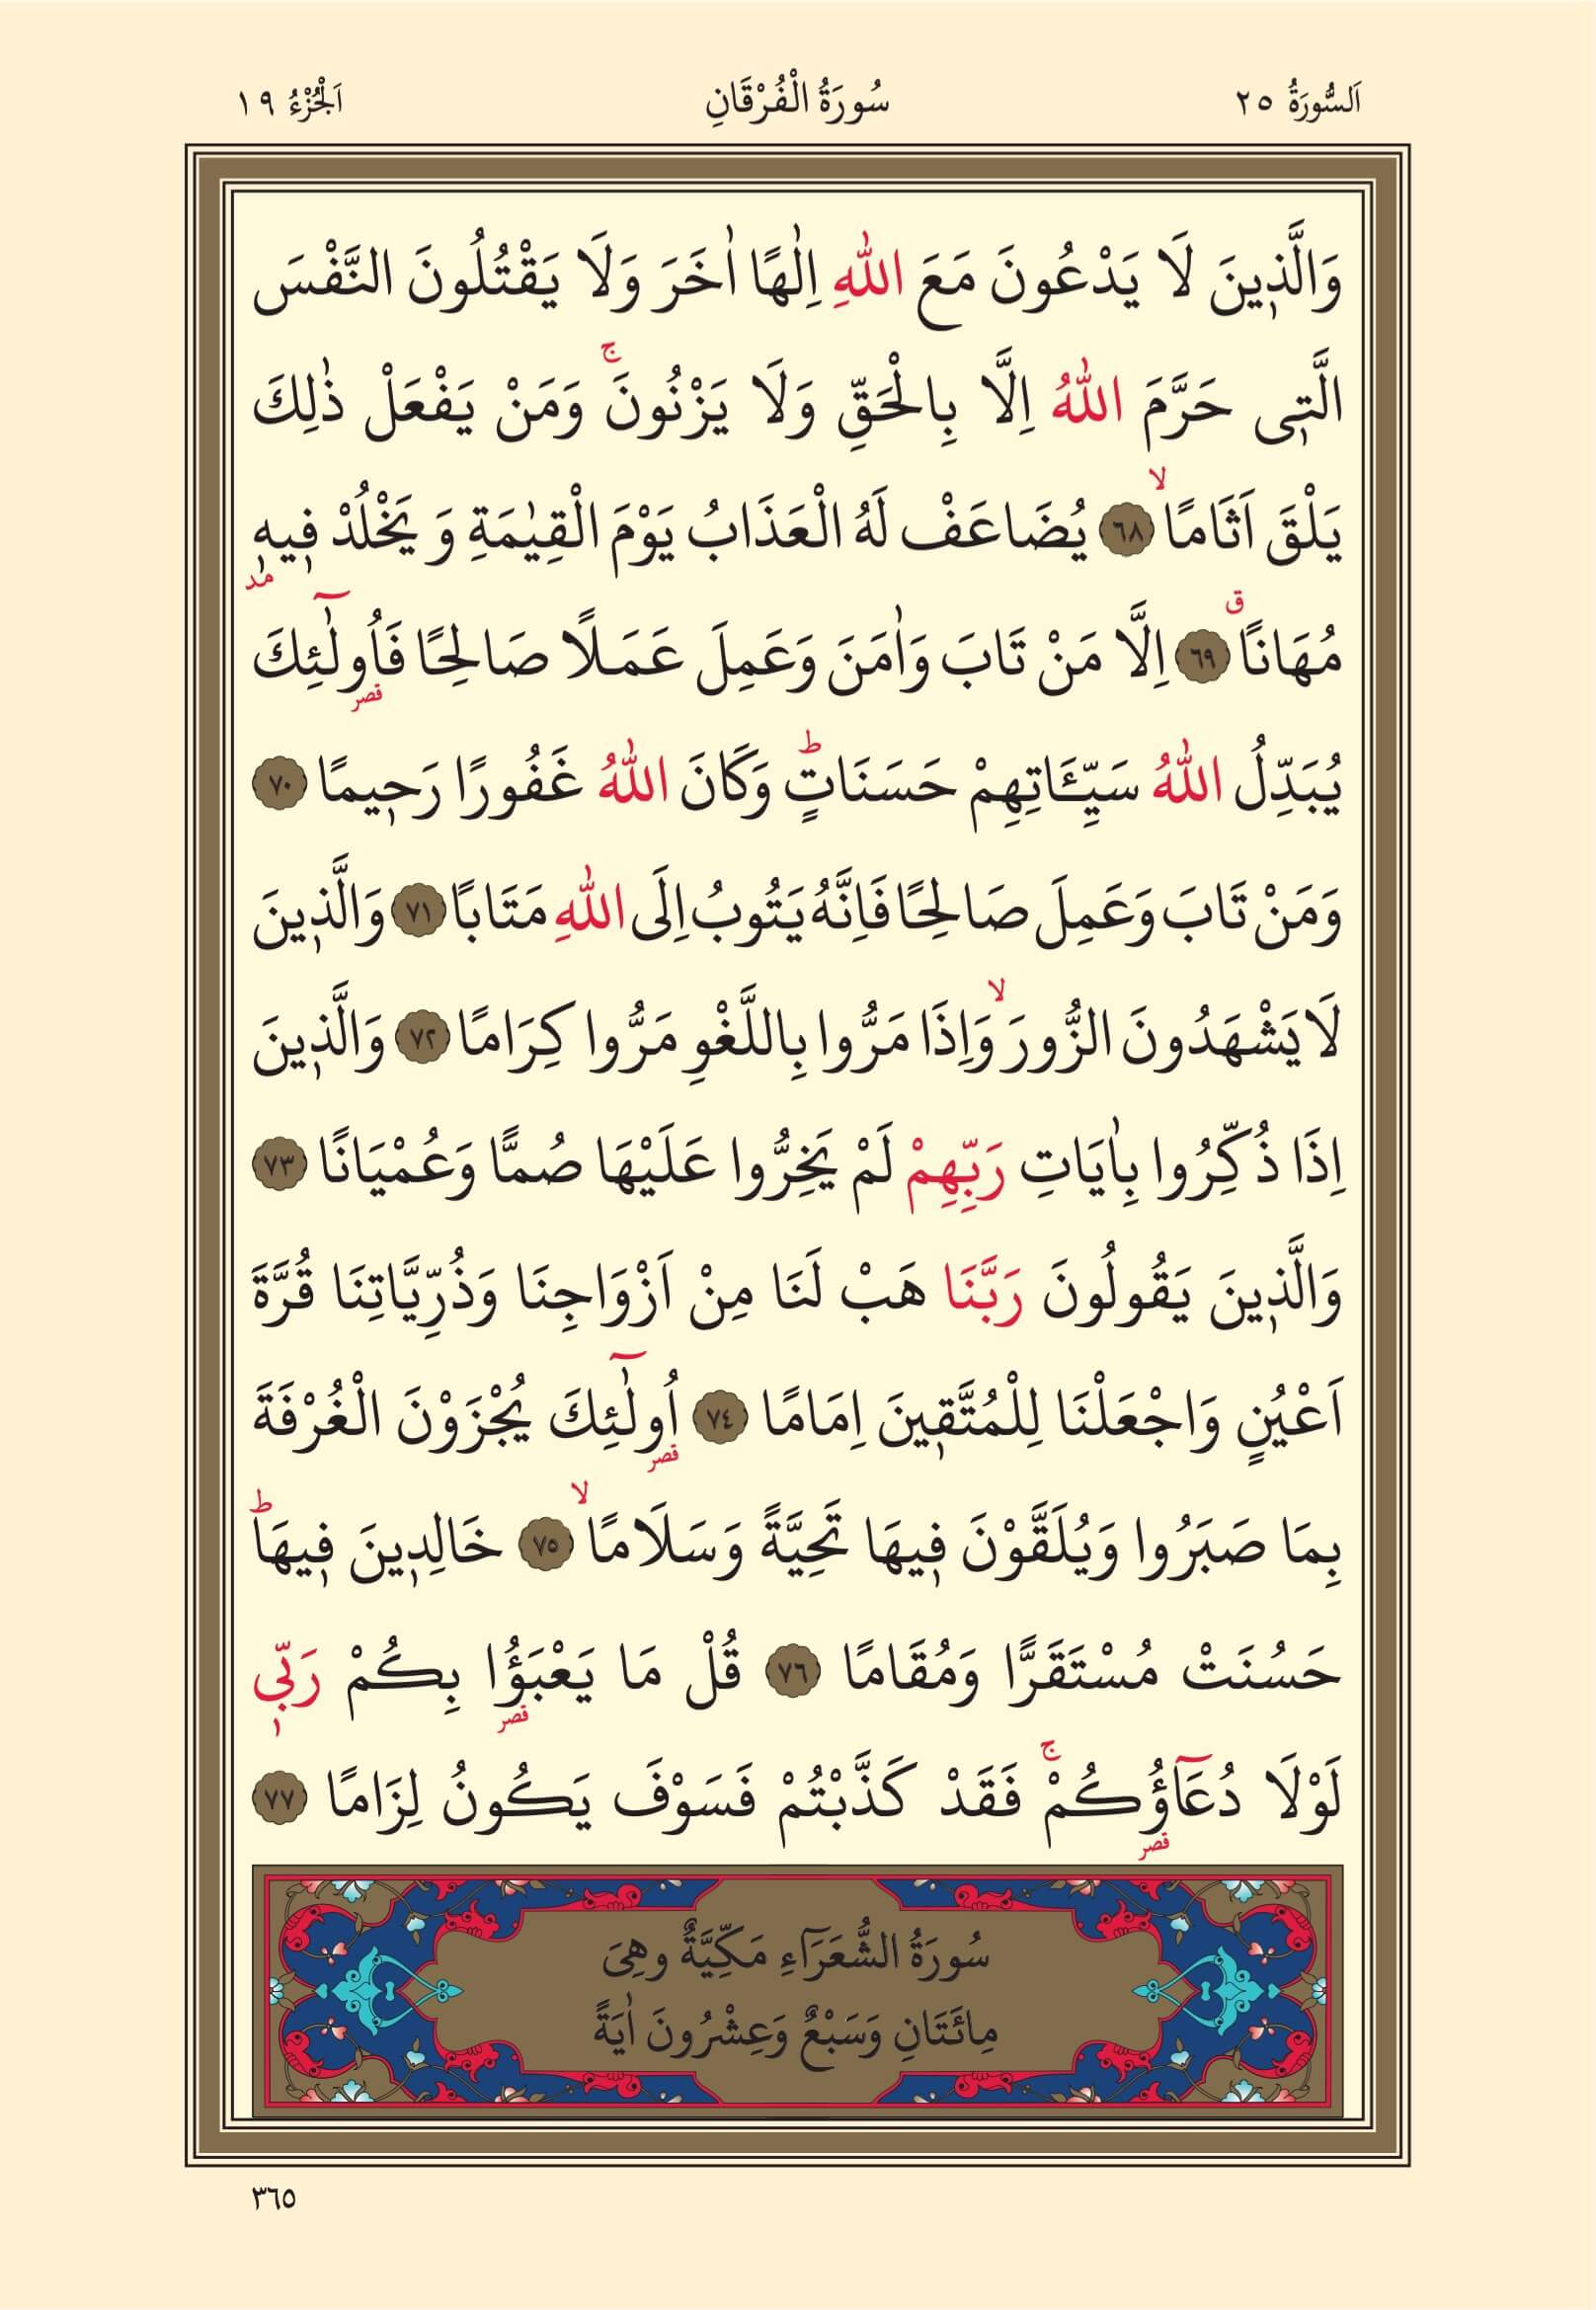 اَلسُّورَةُ ٢٥ سُورَةُ الْفُرْقَانِ اَلْجُزْءُ ١٩
وَالَّذ۪ينَ لَا يَدْعُونَ مَعَ اللّٰهِ اِلٰهًا اٰخَرَ وَلَا يَقْتُلُونَ النَّفْسَ
الَّت۪ى حَرَّمَ اللّٰهُ اِلَّا بِالْحَقِّ وَلَا يَزْنُونَۚ وَمَنْ يَفْعَلْ ذٰلِكَ
يَلْقَ اَثَامًاۙ ٦٨ يُضَاعَفْ لَهُ الْعَذَابُ يَوْمَ الْقِيٰمَةِ وَ يَخْلُدْ ف۪يه۪
مد
مُهَانًاۗ ٦٩ اِلَّا مَنْ تَابَ وَاٰمَنَ وَعَمِلَ عَمَلًا صَالِحًا فَاُو۬لٰٓئِكَ
قصر
يُبَدِّلُ اللّٰهُ سَيِّـَٔاتِهِمْ حَسَنَاتٍۜ وَكَانَ اللّٰهُ غَفُورًا رَح۪يمًا ٧٠
وَمَنْ تَابَ وَعَمِلَ صَالِحًا فَاِنَّهُ يَتُوبُ اِلَى اللّٰهِ مَتَابًا ٧١ وَالَّذ۪ينَ
لَا يَشْهَدُونَ الزُّورَۙ وَاِذَا مَرُّوا بِاللَّغْوِ مَرُّوا كِرَامًا ٧٢ وَالَّذ۪ينَ
اِذَا ذُكِّرُوا بِاٰيَاتِ رَبِّهِمْ لَمْ يَخِرُّوا عَلَيْهَا صُمًّا وَعُمْيَانًا ٧٣
وَالَّذ۪ينَ يَقُولُونَ رَبَّنَا هَبْ لَنَا مِنْ اَزْوَاجِنَا وَذُرِّيَّاتِنَا قُرَّةَ
اَعْيُنٍ وَاجْعَلْنَا لِلْمُتَّق۪ينَ اِمَامًا ٧٤ اُو۬لٰٓئِكَ يُجْزَوْنَ الْغُرْفَةَ
قصر
بِمَا صَبَرُوا وَيُلَقَّوْنَ ف۪يهَا تَحِيَّةً وَسَلَامًاۙ ٧٥ خَالِد۪ينَ ف۪يهَاۜ
حَسُنَتْ مُسْتَقَرًّا وَمُقَامًا ٧٦ قُلْ مَا يَعْبَؤُا بِكُمْ رَبّ۪ى
قصر
لَوْلَا دُعَٓاؤُكُمْۚ فَقَدْ كَذَّبْتُمْ فَسَوْفَ يَكُونُ لِزَامًا ٧٧
قصر
سُورَةُ الشُّعَرَٓاءِ مَكِّيَّةٌ وهِىَ
مِائَتَانِ وَسَبْعٌ وَعِشْرُونَ اٰيَةً
٣٦٥